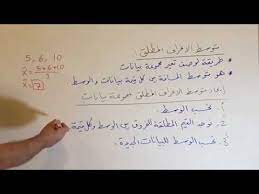 متوسط الانحراف المطلق
* طريقة لوصف تغير مجموعة بيانات
* هو متوسط المسافة بين كل قيمة بيانات والوسط
إيجاد متوسط الانحراف المطلق لمجموعة بيانات
1. نحسب الوسط.
2. نوجد القيم المطلقة للفروق بين الوسط وكل قيمة
3. نحسب الوسط للبيانات الجديدة.
5, 6, 10
x̄ = 5+6+10 / 3
x̄ = 7